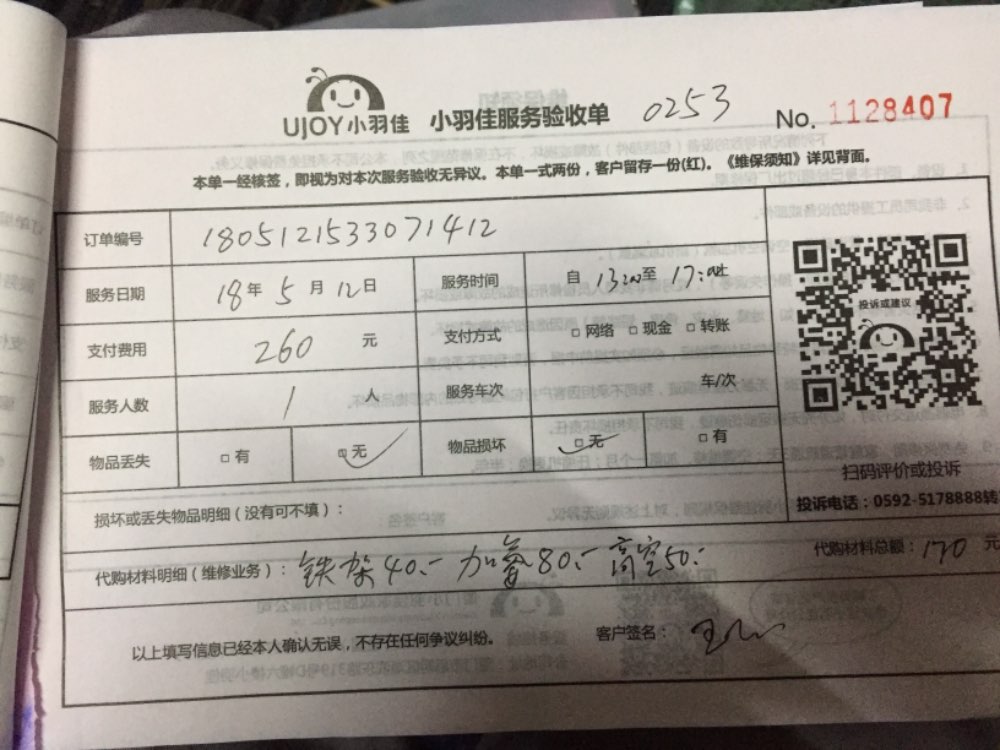 UJOY小羽佳 小羽佳服务验收单 0253 No. 1128407
本单一经核签，即视为对本次服务验收无异议。本单一式两份，客户留存一份(红)。《维保须知》详见背面。
订单编号 1805121533071412
服务日期 18年 5月 12日 服务时间 自 13:00至 17:00止
支付费用 260 元 支付方式 □网络 □现金 □转账
投诉或建议
服务人数 1 人 服务车次 车/次
物品丢失 □有 □无 物品损坏 □无 □有
扫码评价或投诉
损坏或丢失物品明细（没有可不填）：
投诉电话：0592-5178888转
代购材料明细（维修业务）： 铁架40.- 加氟80.- 高空50.- 代购材料总额：170 元
以上填写信息已经本人确认无误，不存在任何争议纠纷。 客户签名：